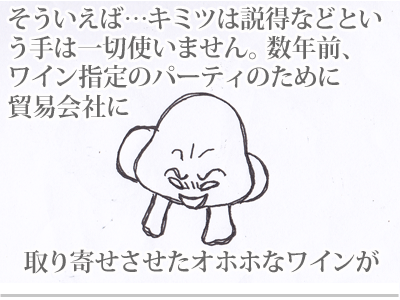 そういえば…キミツは説得などとい
う手は一切使いません。数年前、
ワイン指定のパーティのために
貿易会社に
取り寄せさせたオホホなワインが